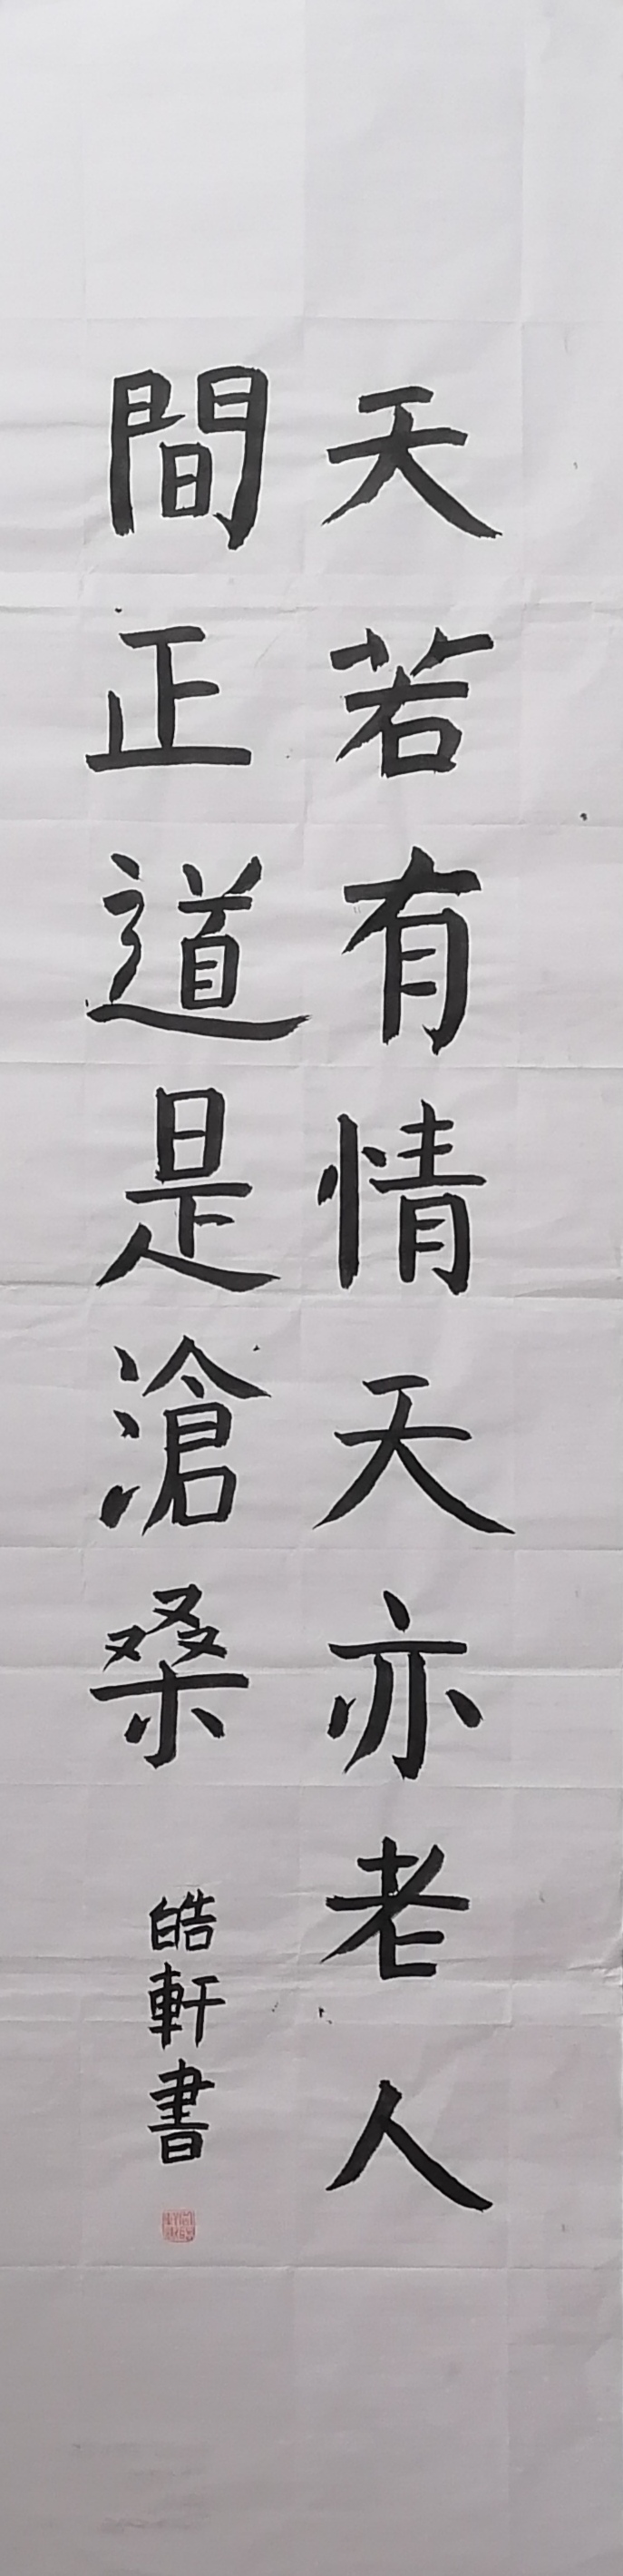 天若有情天亦老人
間正道是滄桑
皓軒書